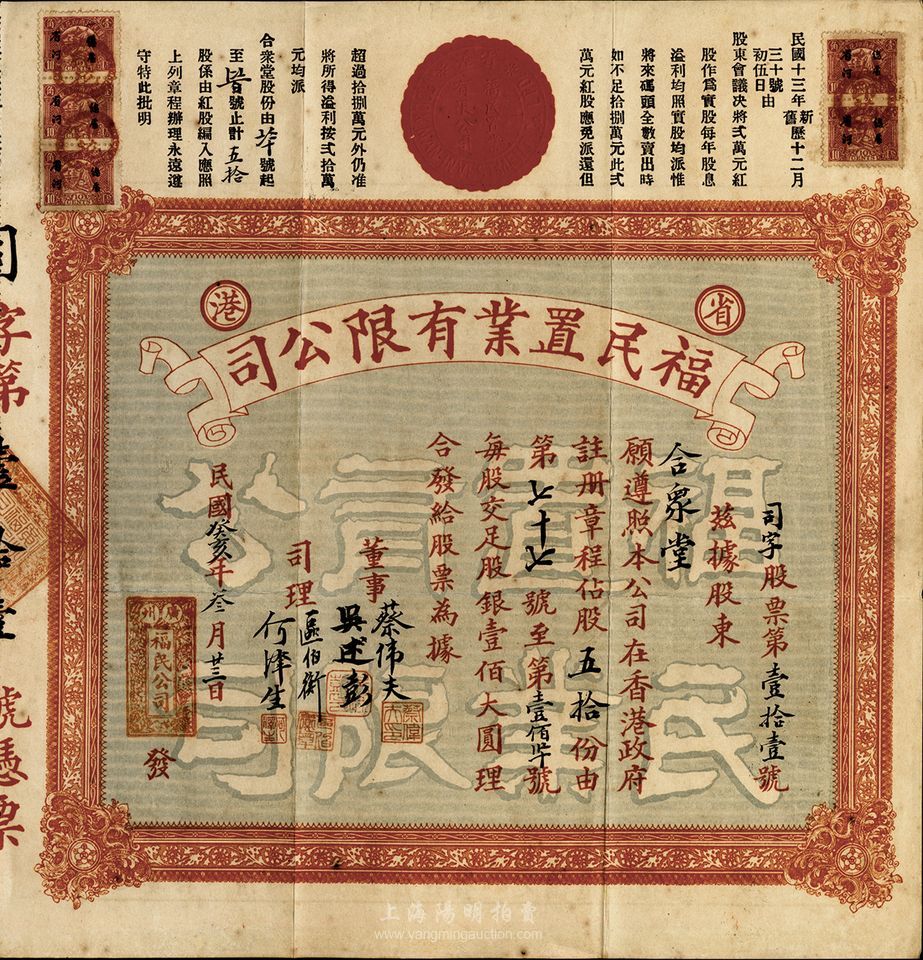 民國十三年新舊歷十二月
三十號
初伍日由
股東會議決將弍萬元紅
股作爲實股每年股息
溢利均照實股均派惟
將來碼頭全數賣出時
如不足拾捌萬元此弍
萬元紅股應免派還但
超過拾捌萬元外仍准
將所得溢利按弍拾萬
元均派
合衆堂股份由 號起
至 號止計五拾
股係由紅股編入應照
上列章程辦理永遠遵
守特此批明
省港
福民置業有限公司
司字股票第壹拾壹號
茲據股東
合衆堂
願遵照本公司在香港政府
註册章程佔股五拾份由
第六十六號至第壹佰 號
每股交足股銀壹佰大圓理
合發給股票為據
董事
蔡偉夫
吳述彭
司理
區伯衡
何澤生
民國癸亥年叁月廿三日
發
廣州
福民公司
福置有公
民業限司
字第壹拾壹號憑票
上海陽明拍賣
www.yangmingauction.com